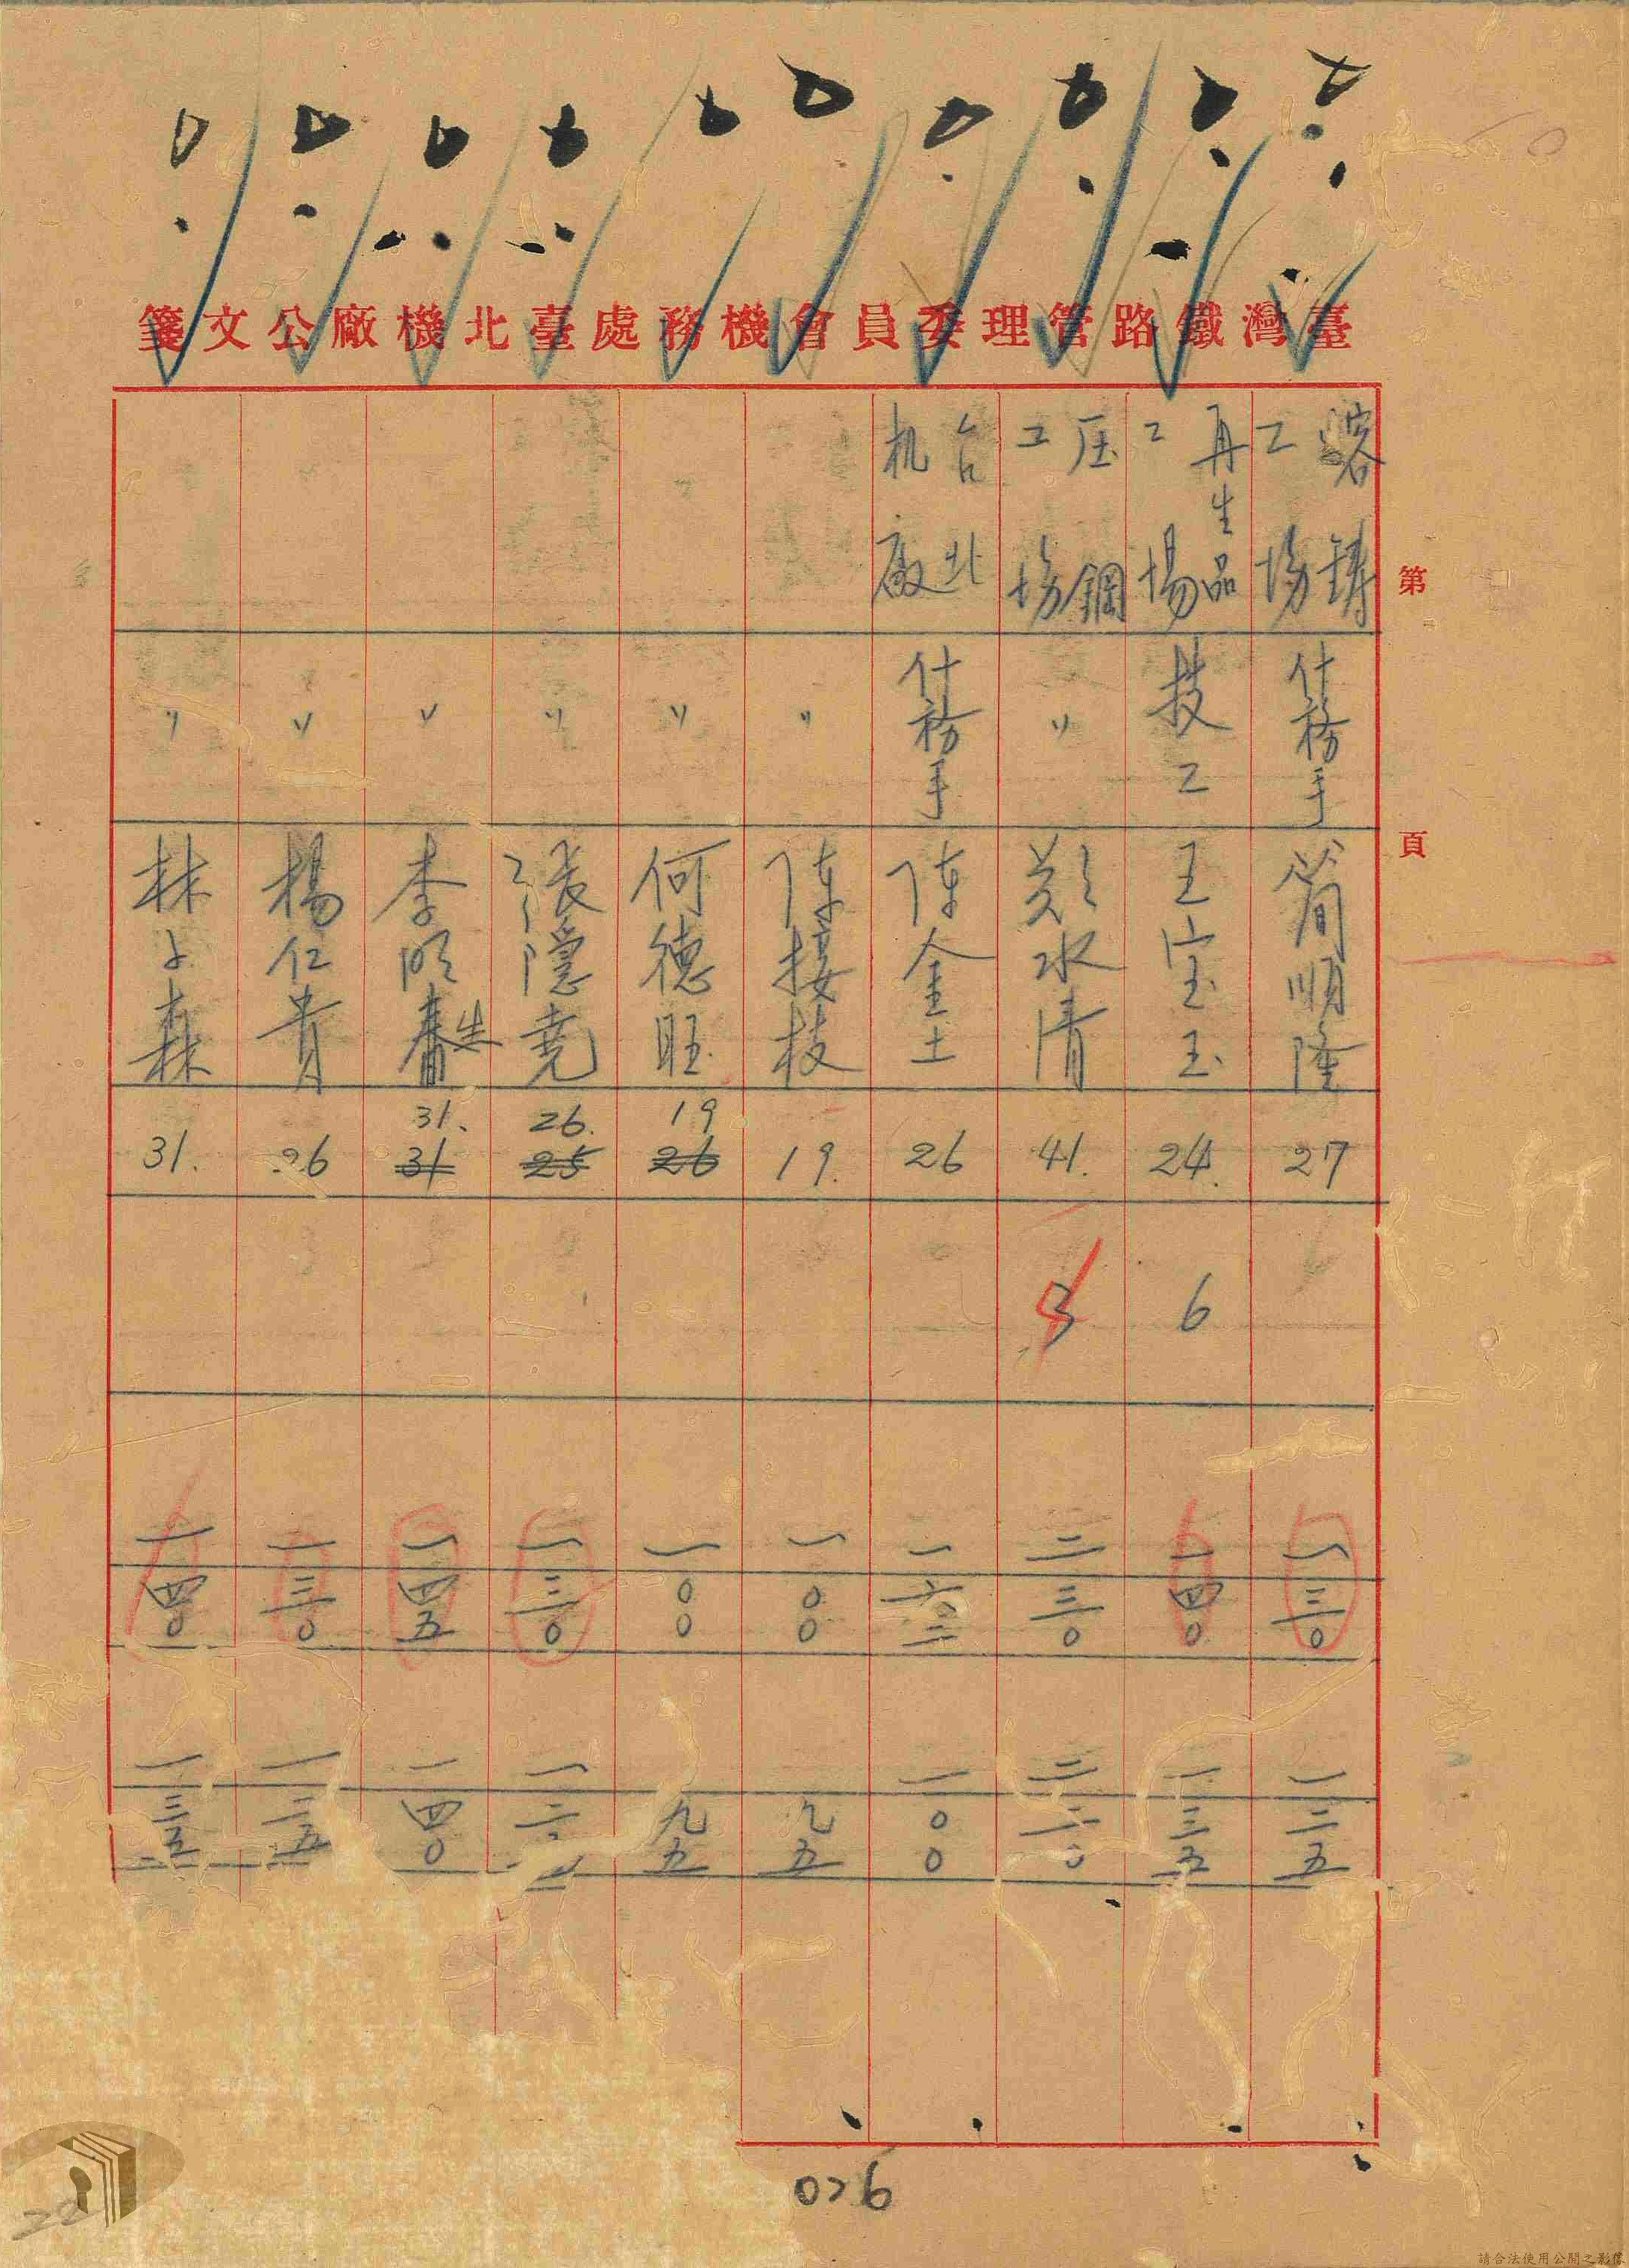 臺灣鐵路管理委員會機務處臺北機廠公文箋
第 頁
溶鑄工場 什務手 簡順隆 27 一三〇 一二五
再生品工場 技工 王宝玉 24. 6 一四〇 一三五
压鋼工場 〃 鄭水清 41. 3 二三〇 二二〇
台北机廠 什務手 陳金土 26 一六二 一〇〇
〃 陳接枝 19. 一〇〇 九五
〃 何德旺 19 26 一〇〇 九五
〃 張隱堯 26. 25 一三〇
〃 李明春生 31. 31 一四五 一四〇
〃 楊仁貴 26 一三〇 一二五
〃 林森 31. 一四〇 一三五
026
請合法使用公開之影像